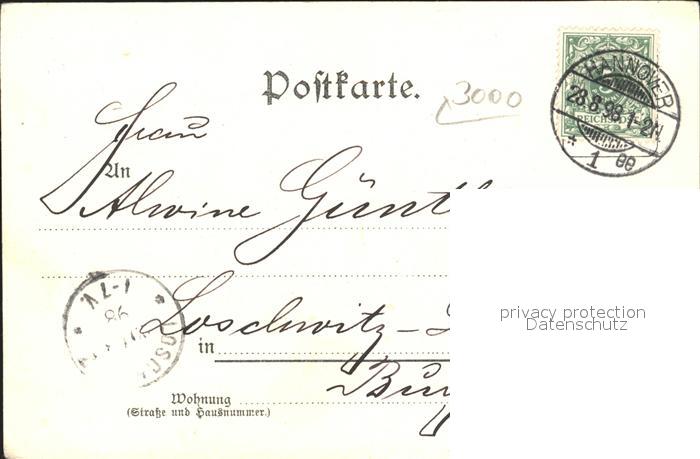 Postkarte.
3000
HANNOVER
28.8.98.1-2N.
* 1 ee
REICHSPOST
Frau
An
Alwine Günth
Loschwitz –
in
Bur
Wohnung
(Straße und Hausnummer.)
98
privacy protection
Datenschutz